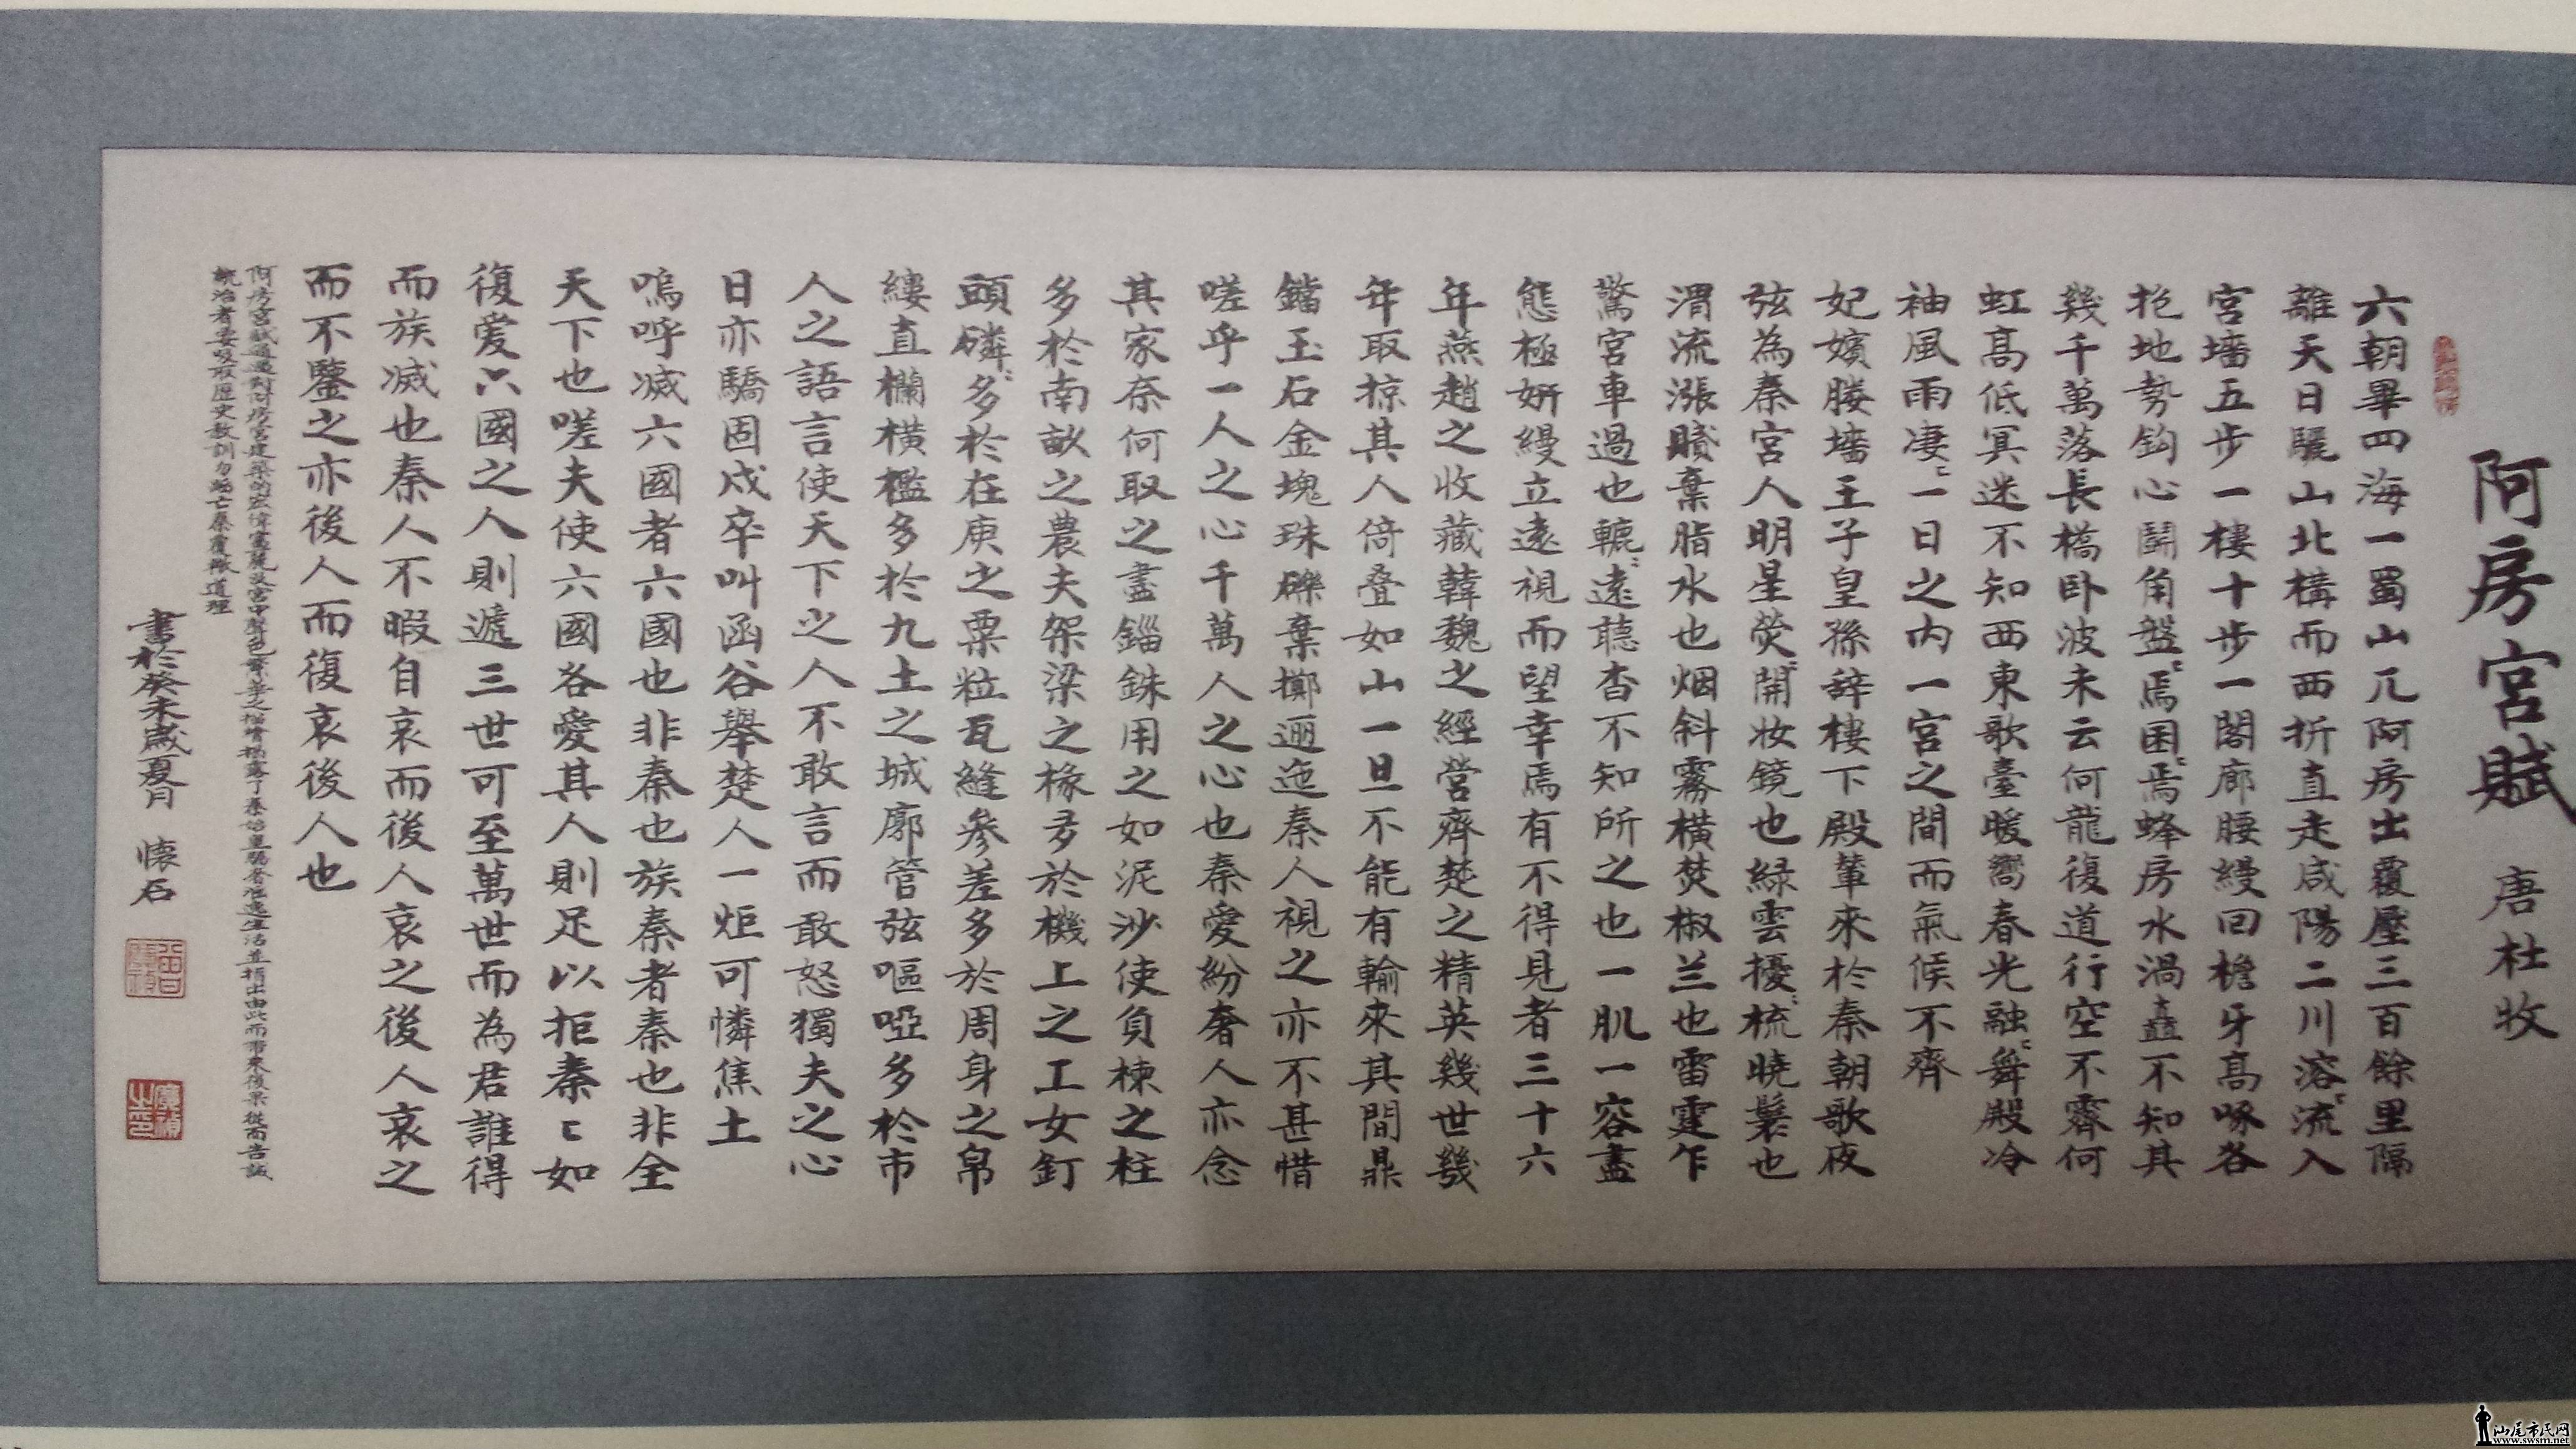 阿房宮賦 唐杜牧
六朝畢四海一蜀山兀阿房出覆壓三百餘里隔
離天日驪山北構而西折直走咸陽二川溶〻流入
宮墻五步一樓十步一閣廊腰縵回檐牙高啄各
抱地勢鈎心鬭角盤〻焉困〻焉蜂房水渦矗不知其
幾千萬落長橋卧波未云何龍復道行空不霽何
虹高低冥迷不知西東歌臺暖嚮春光融〻舞殿冷
袖風雨凄〻一日之内一宮之間而氣候不齊
妃嬪媵墻王子皇孫辭樓下殿輦來於秦朝歌夜
弦為秦宮人明星熒〻開妝鏡也緑雲擾〻梳曉鬟也
渭流漲膩棄脂水也烟斜霧橫焚椒兰也雷霆乍
驚宮車過也轆〻遠聽杳不知所之也一肌一容盡
態極妍縵立遠視而望幸焉有不得見者三十六
年燕趙之收藏韓魏之經營齊楚之精英幾世幾
年取掠其人倚叠如山一旦不能有輸來其間鼎
鐺玉石金塊珠礫棄擲邐迤秦人視之亦不甚惜
嗟乎一人之心千萬人之心也秦愛紛奢人亦念
其家奈何取之盡錙銖用之如泥沙使負棟之柱
多於南畝之農夫架梁之椽多於機上之工女釘
頭磷〻多於在庾之粟粒瓦縫參差多於周身之帛
縷直欄橫檻多於九土之城廓管弦嘔啞多於市
人之語言使天下之人不敢言而敢怒獨夫之心
日亦驕固戍卒叫函谷舉楚人一炬可憐焦土
嗚呼滅六國者六國也非秦也族秦者秦也非全
天下也嗟夫使六國各愛其人則足以拒秦〻如
復爱六國之人則遞三世可至萬世而為君誰得
而族滅也秦人不暇自哀而後人哀之後人哀之
而不鑒之亦後人而復哀後人也
阿房宮賦通過對阿房宮建築的宏偉富麗及宮中聲色繁華之描寫揭露了秦始皇驕奢淫逸生活並指出由此而带來後果從而告誡
統治者要吸取歷史教訓勿蹈亡秦覆轍道理
書於癸未歲夏月 懷石
汕尾市民网
www.swsm.net